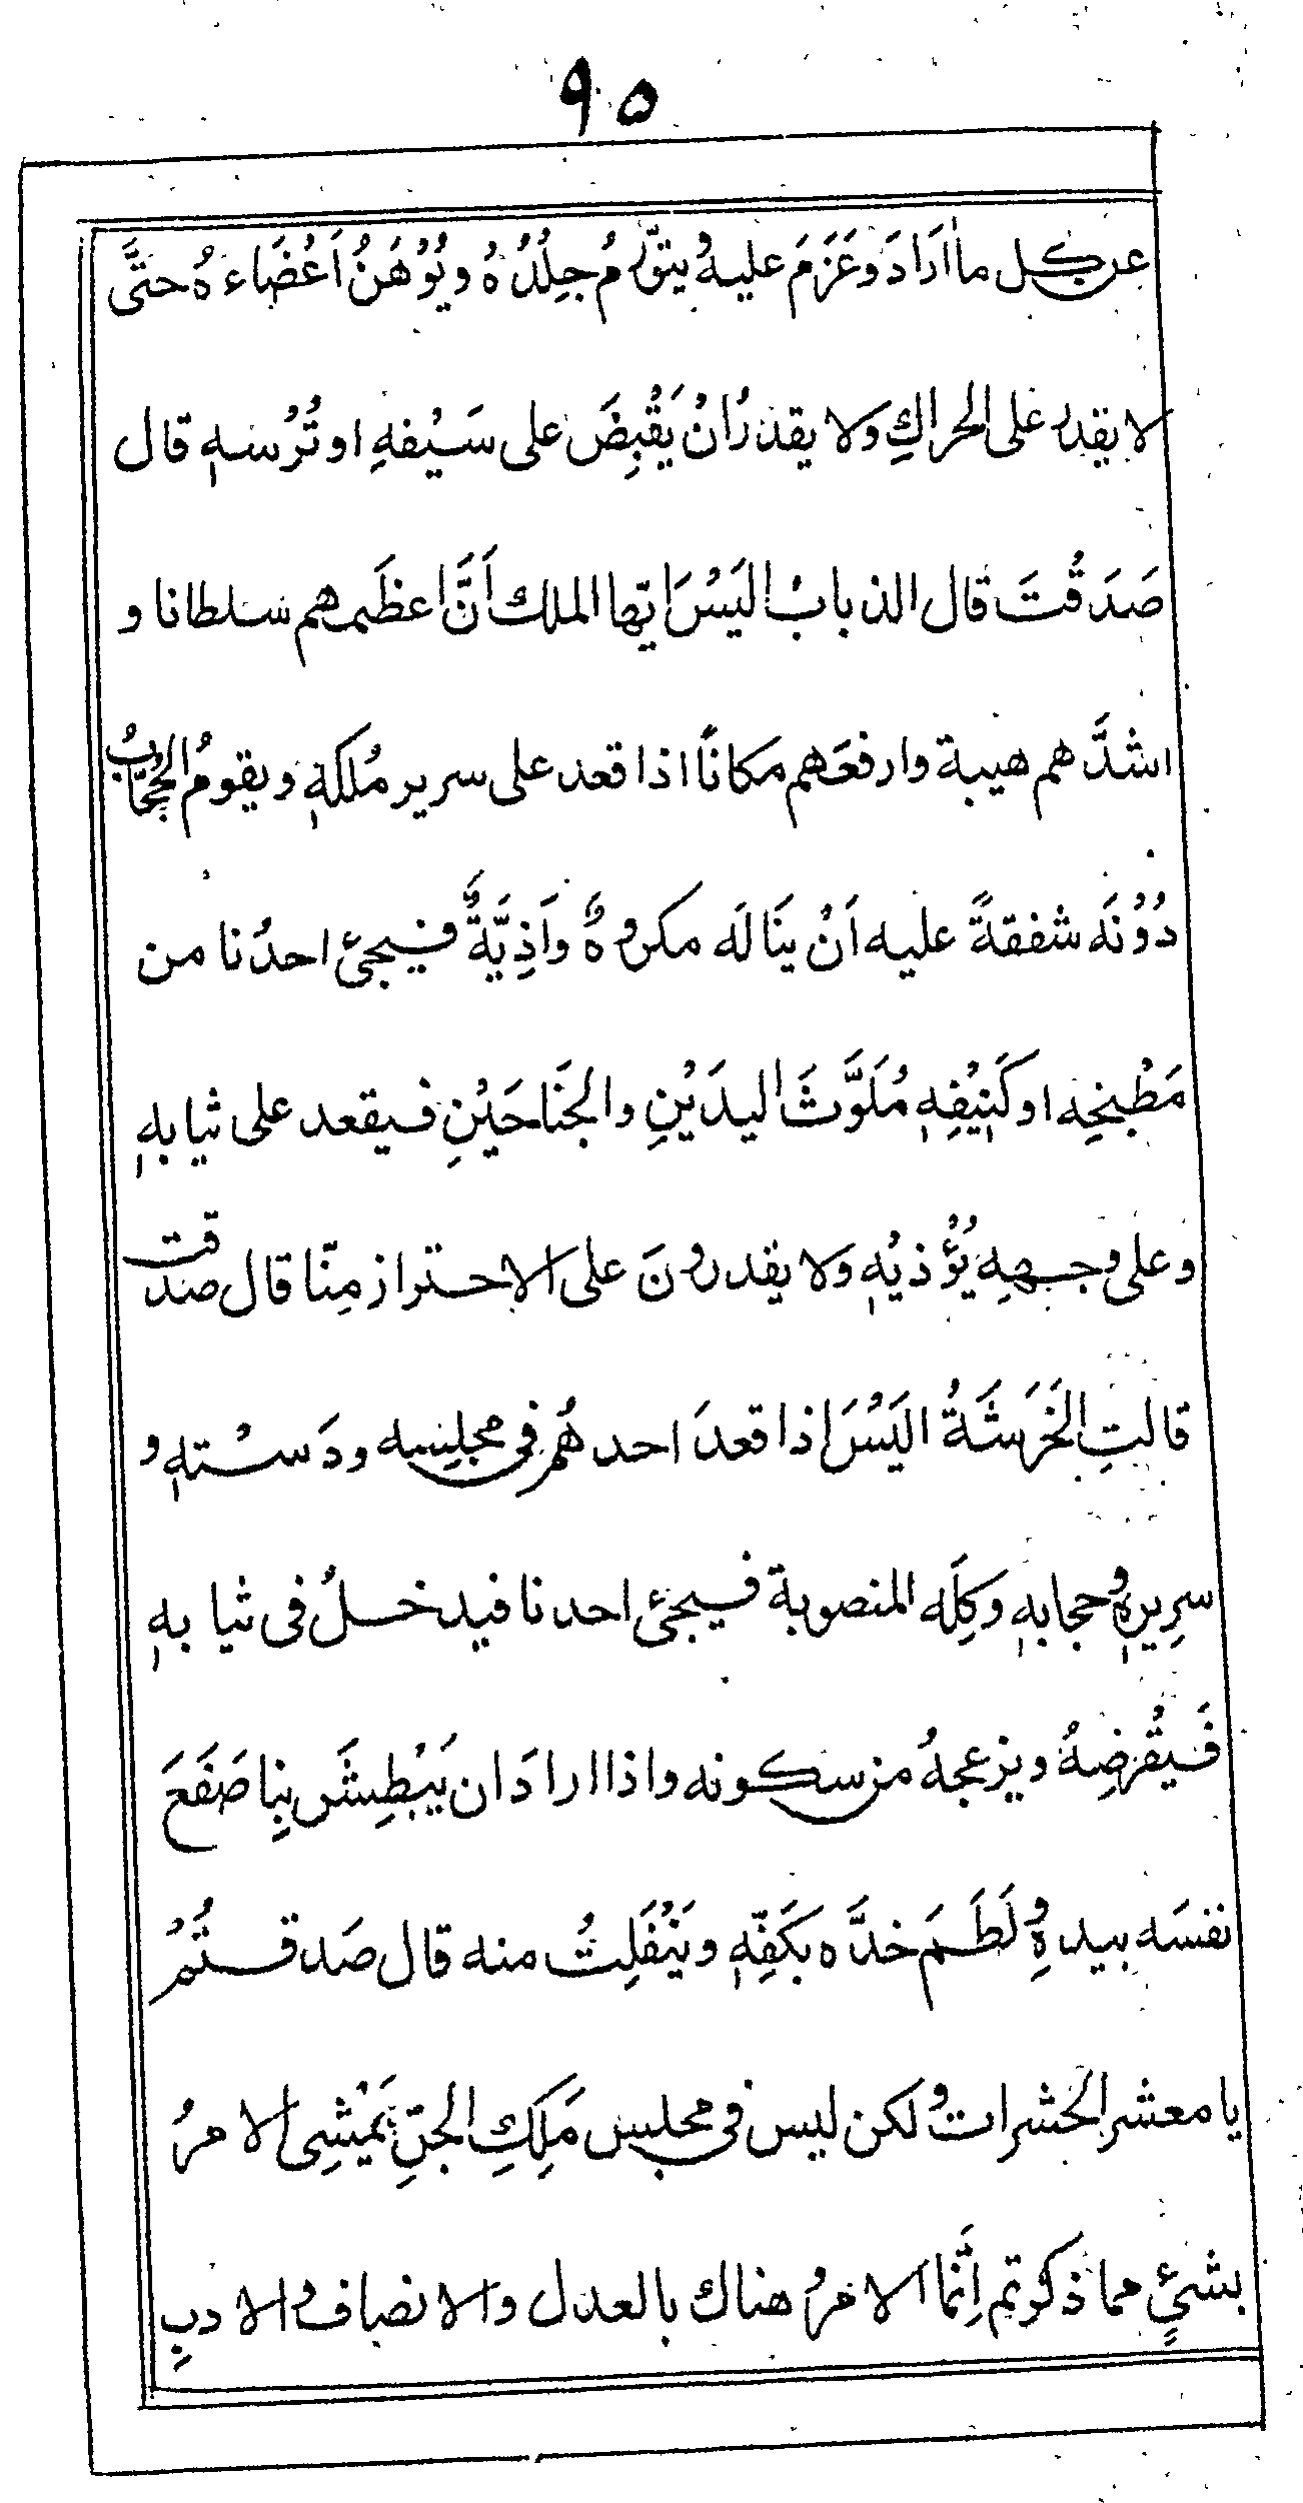 ٩٥
عن كل ما اَرَادَ وعَزَمَ عليهُ يتوّرمُ جِلْدُهُ ويُوْهَنُ اَعْضَاءَهُ حتَّى
لا يقدر على الحراكِ ولا يقدرُ انْ يَقْبِضَ على سَيْفهِ او تُرْسهٖ قال
صَدَقْتَ قال الذبابْ اليَسْ ايّها الملك اَنَّ اعظَمهم سلطانا و
اشدَّهم هيبة وارفعَهم مكاناً اذا قعد على سرير مُلكهٖ ويقومُ الحُجّابُ
دُوْنَه شفقةً عليه اَنْ ينَالَه مكروهٌ واَذِيَّةٌ فيجئ احدُنا من
مَطْبخِه او كَنِيْفِهٖ مُلَوَّثَ اليدَيْنِ والجَناحَيْنِ فيقعد على ثيابهٖ
وعلى وجههِ يُؤْذيْهٖ ولا يقدرونَ على الاحتراز مِنّا قال صدقت
قالتِ الخَرَشَةُ اليَسْ اذا قعدَ احدهُم فى مجلسِه ودَسْتهٖ و
سرِيرِهٖ وحجابهٖ وكِلَه المنصوبة فيجئ احدنا فيدخلُ فى ثيابهٖ
فَيقْرضِهُ ويزعجهُ من سكونه واذا ارادَ ان يَبْطِشَ بِنا صَفَعَ
نفسَه بيدهٖ ولَطَمَ خدَّه بكَفِّهٖ ويَنْفَلِتُ منه قال صَدقتُمْ
يا معشر الحَشرات ولكن ليس فى مجلس مَلِكِ الجنِّ يَمْشِى الامرُ
بشئٍ مما ذكرتم اِنَّما الامرُ هناك بالعدل والانصاف والادبِ